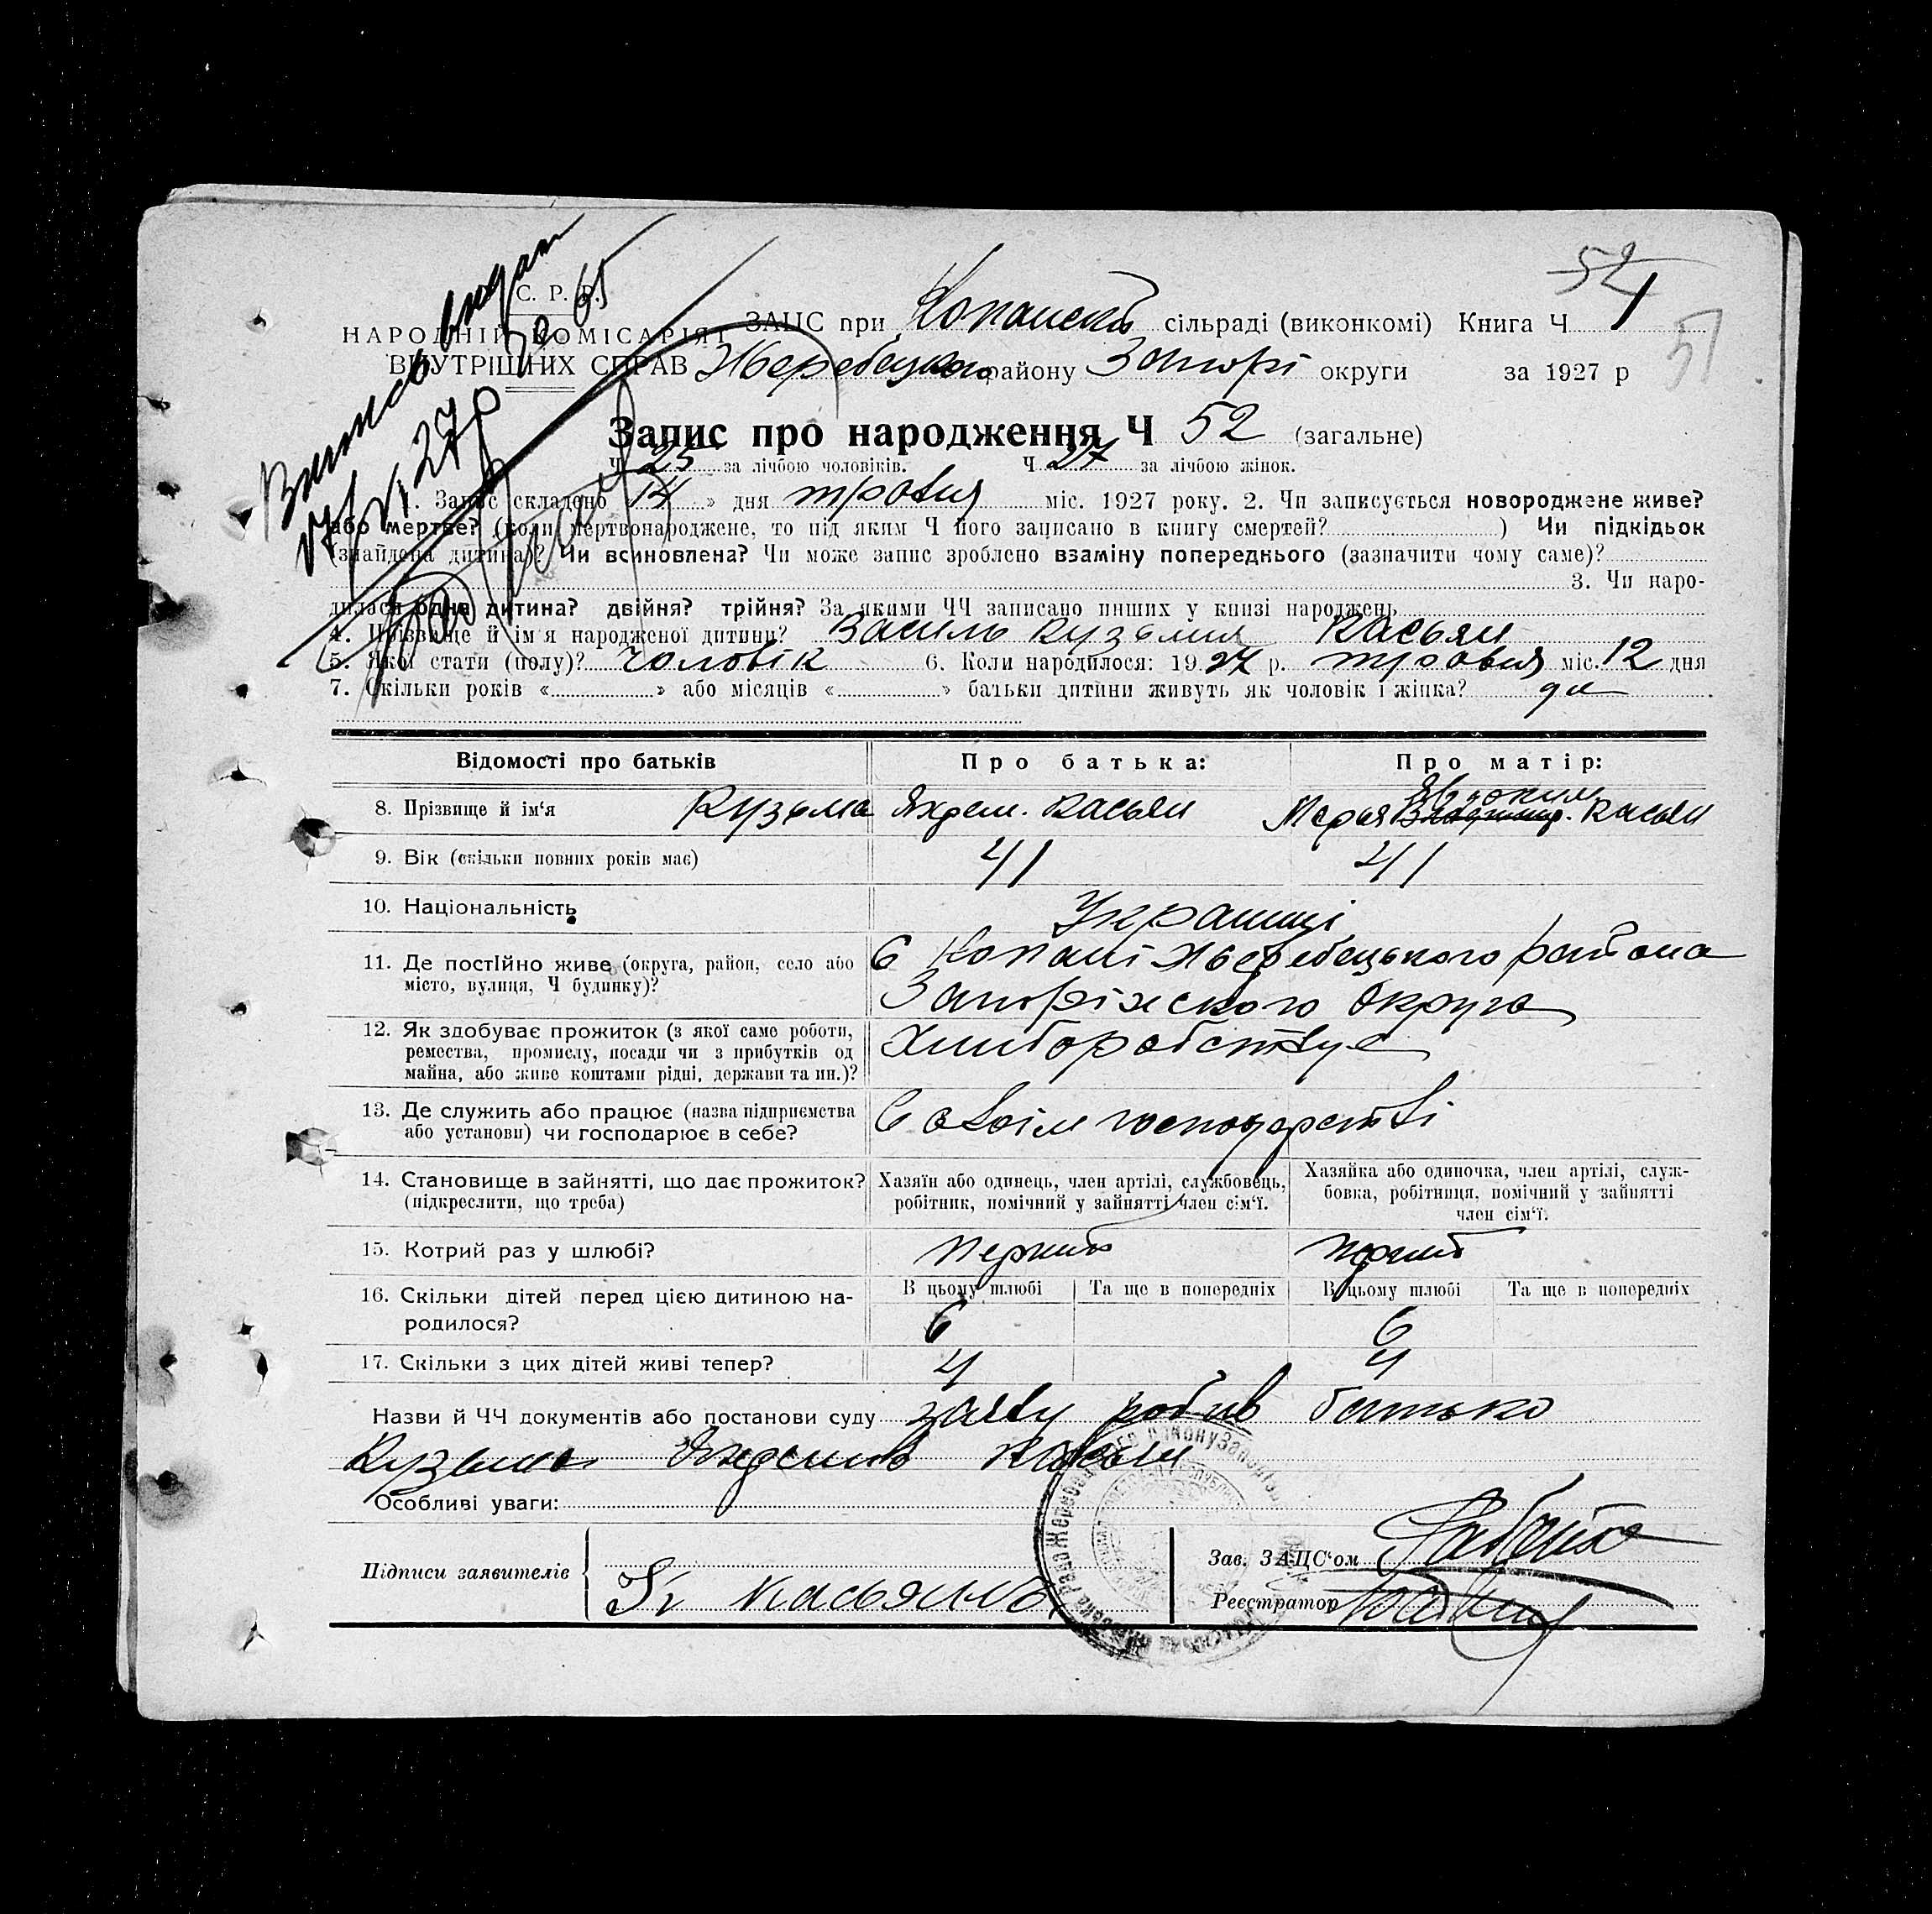 52
1
51
Витяг видан
№ 65
17/VI 27 р
С. Р. Р.
НАРОДНІЙ КОМІСАРІЯТ
ВНУТРІШНІХ СПРАВ
ЗАЦС при Копанскій сільраді (виконкомі) Книга Ч 1
Жеребецкого району Запорі округи за 1927 р
Запис про народження Ч 52 (загальне)
Ч 25 за лічбою чоловіків. Ч 27 за лічбою жінок.
1. Запис складено « 14 » дня травня міс. 1927 року. 2. Чи записується новороджене живе?
або мертве? (коли мертвонароджене, то під яким Ч його записано в книгу смертей? ) Чи підкідьок
(знайдена дитина)? Чи всиновлена? Чи може запис зроблено взаміну попереднього (зазначити чому саме)?
3. Чи наро-
дилася одна дитина? двійня? трійня? За якими ЧЧ записано инших у книзі народжень
4. Прізвище й ім'я народженої дитини? Василь Кузьмин Касьян
5. Якої стати (полу)? Чоловік 6. Коли народилося: 1927 р. травня міс. 12 дня
7. Скільки років « » або місяців « » батьки дитини живуть як чоловік і жінка? да
Відомості про батьків Про батька: Про матір:
8. Прізвище й ім‘я Кузьма Яхрем. Касьян Марья Касьян
9. Вік (скільки повних років має) 41 41
10. Національність Украинці
11. Де постійно живе (округа, район, село або місто, вулиця, Ч будинку)? С Копані Жеребецького района
Запоріжского Округа
12. Як здобуває прожиток (з якої саме роботи, ремества, промислу, посади чи з прибутків од майна, або живе коштами рідні, держави та ин.)? Хлиборобствує
13. Де служить або працює (назва підприємства або установи) чи господарює в себе? В своім господарстві
14. Становище в зайнятті, що дає прожиток? (підкреслити, що треба) Хазяїн або одинець, член артілі, службовець, робітник, помічний у зайнятті член сім‘ї. Хазяйка або одиночка, член артілі, служ-
бовка, робітниця, помічний у зайнятті член сім‘ї.
15. Котрий раз у шлюбі? Перший Перший
16. Скільки дітей перед цією дитиною на-
родилося? В цьому шлюбі Та ще в попередніх В цьому шлюбі Та ще в попередніх
6 6
17. Скільки з цих дітей живі тепер? 4 4
Назви й ЧЧ документів або постанови суду заяву робив батько
Кузьма Яхремив Касьян
Особливі уваги:
Підписи заявителів Зав. ЗАЦС‘ом
К Касьянив Реєстратор